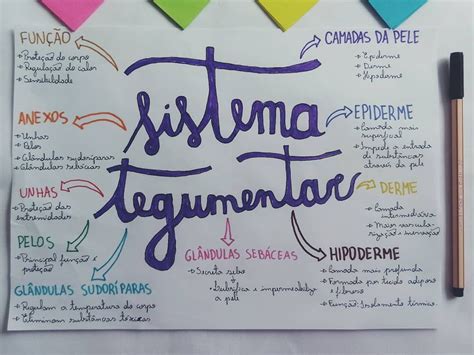 FUNÇÃO
→ Proteção do corpo
→ Regulação do calor
→ Sensibilidade
ANEXOS
→ Unhas
→ Pelos
→ Glândulas sudoríparas
→ Glândulas sebáceas
UNHAS
→ Proteção das
extremidades
PELOS
→ Principal função é
proteção
GLÂNDULAS SUDORÍPARAS
→ Regulam a temperatura do corpo
→ Eliminam substâncias tóxicas
sistema
tegumentar
GLÂNDULAS SEBÁCEAS
→ Secreta sebo
→ Lubrifica e impermeabiliza
a pele
CAMADAS DA PELE
→ Epiderme
→ Derme
→ Hipoderme
EPIDERME
→ Camada mais
superficial
→ Impede a entrada
de substâncias
através da pele
DERME
→ Camada
intermediária
→ Mais vascula-
rização e inervação
HIPODERME
→ Camada mais profunda
→ Formada por tecido adiposo e
fibroso
→ Função: Isolamento térmico.